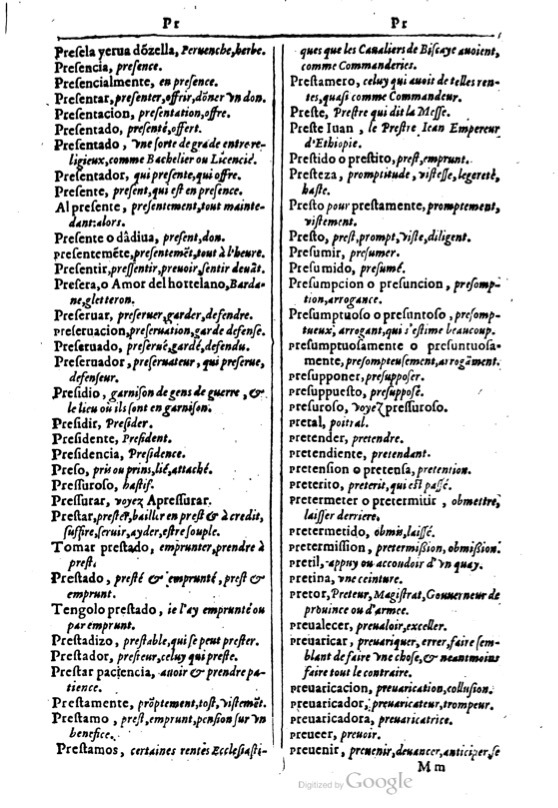 Pr
Presela yerua dõzella, Peruenche, herbe.
Presencia, presence.
Presencialmente, en presence.
Presentar, presenter, offrir, dõner vn don.
Presentacion, presentation, offre.
Presentado, presenté, offert.
Presentado, vne sorte de grade entre re-
ligieux, comme Bachelier ou Licencié.
Presentador, qui presente, qui offre.
Presente, present, qui est en presence.
Al presente, presentement, tout mainte-
dant: alors.
Presente o dâdiua, present, don.
presentemẽte, presentemẽt, tout à l'heure.
Presentir, pressentir, preuoir, sentir deuãt.
Presera, o Amor del hortelano, Barda-
ne, gletteron.
Preseruar, preseruer, garder, defendre.
preseruacion, preseruation, garde defense.
Preseruado, preserué, gardé, defendu.
Preseruador, preseruateur, qui preserue,
defenseur.
Presidio, garnison de gens de guerre, &
le lieu où ils sont en garnison.
Presidir, Presider.
Presidente, President.
Presidencia, Presidence.
Preso, pris ou prins, lié, attaché.
Pressuroso, hastif.
Pressurar, voyez Apressurar.
Prestar, prester, bailler en prest & à credit,
suffire, seruir, ayder, estre souple.
Tomar prestado, emprunter, prendre à
prest.
Prestado, presté & emprunté, prest &
emprunt.
Tengolo prestado, ie l'ay emprunté ou
par emprunt.
Prestadizo, prestable, qui se peut prester.
Prestador, presteur, celuy qui preste.
Prestar paciencia, auoir & prendre pa-
tience.
Prestamente, prõptement, tost, vistemẽt.
Prestamo, prest, emprunt, pension sur vn
benefice.
Prestamos, certaines rentes Ecclesiasti-
Pr
ques que les Caualiers de Biscaye auoient,
comme Commanderies.
Prestamero, celuy qui auoit de telles ren-
tes, quasi comme Commandeur.
Preste, Prestre qui dit la Messe.
Preste Iuan, le Prestre Iean Empereur
d'Ethiopie.
Prestido o prestito, prest, emprunt.
Presteza, promptitude, vistesse, legereté,
haste.
Presto pour prestamente, promptement,
vistement.
Presto, prest, prompt, viste, diligent.
Presumir, presumer.
Presumido, presumé.
Presumpcion o presuncion, presomp-
tion, arrogance.
Presumptuoso o presuntoso, presomp-
tueux, arrogant, qui s'estime beaucoup.
presumptuosamente o presuntuosa-
mente, presompteusement, arrogãment.
presupponer, presupposer.
presuppuesto, presupposé.
presuroso, voyez pressuroso.
pretal, poitral.
pretender, pretendre.
pretendiente, pretendant.
pretension o pretensa, pretention.
preterito, preterit, qui est passé.
pretermeter o pretermitir, obmettre,
laisser derriere.
pretermetido, obmis, laissé.
pretermission, pretermißion, obmißion.
pretil, appuy ou accoudoir d'vn quay.
pretina, vne ceinture.
pretor, Preteur, Magistrat, Gouuerneur de
prouince ou d'armee.
preualecer, preualoir, exceller.
preuaricar, preuariquer, errer, faire sem-
blant de faire vne chose, & neantmoins
faire tout le contraire.
preuaricacion, preuarication, collusion.
preuaricador, preuaricateur, trompeur.
preuaricadora, preuaricatrice.
preueer, preuoir.
preuenir, preuenir, deuancer, anticiper, se
M m
Digitized by Google